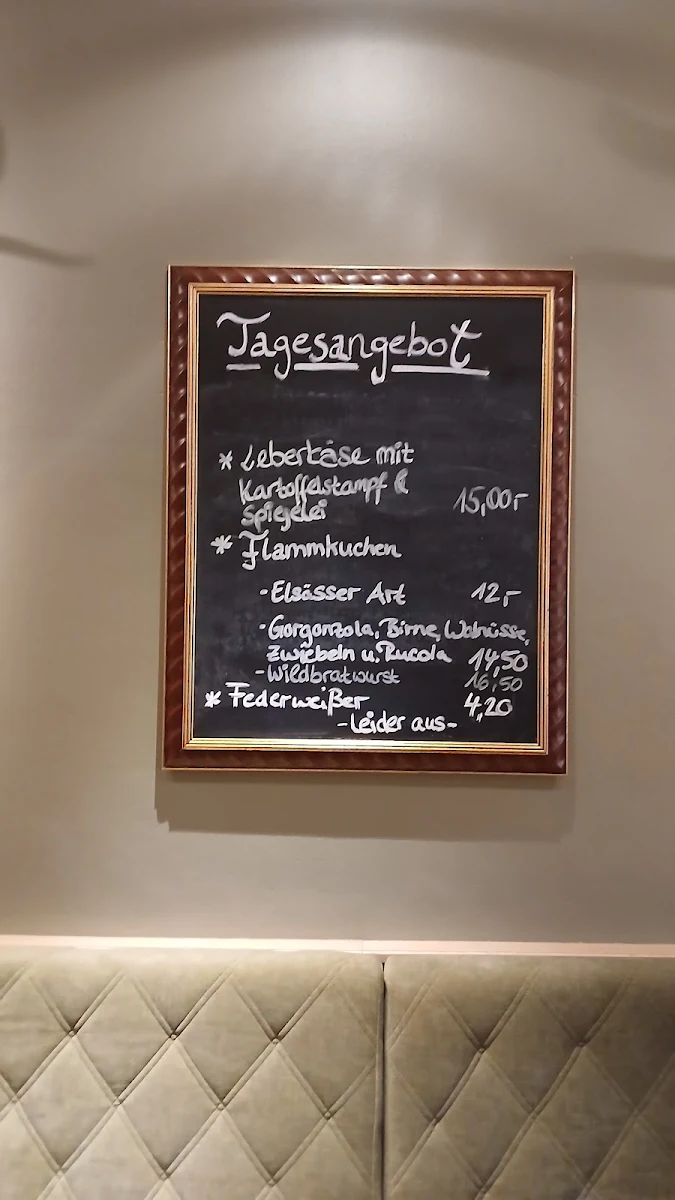 Tagesangebot
* Leberkäse mit
Kartoffelstampf &
Spiegelei 15,00,-
* Flammkuchen
- Elsässer Art 12,-
- Gorgonzola, Birne, Walnüsse,
Zwiebeln u. Rucola 14,50
- Wildbratwurst 16,50
* Federweißer 4,20
- Leider aus -